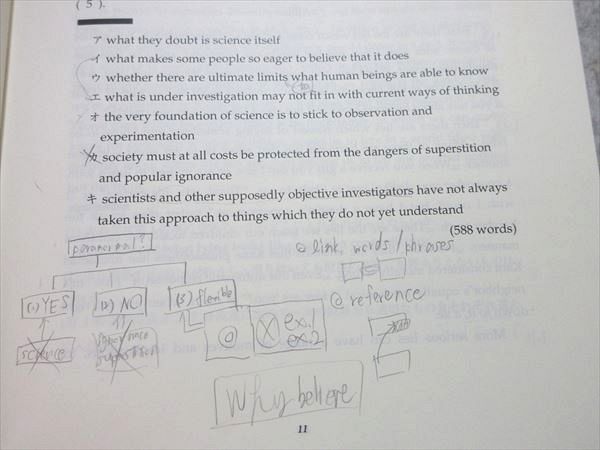 ( 5 ).
ア what they doubt is science itself
イ what makes some people so eager to believe that it does
ウ whether there are ultimate limits what human beings are able to know
(to)
エ what is under investigation may not fit in with current ways of thinking
オ the very foundation of science is to stick to observation and
experimentation
カ society must at all costs be protected from the dangers of superstition
and popular ignorance
キ scientists and other supposedly objective investigators have not always
taken this approach to things which they do not yet understand
(588 words)
paranormal?
◎ link words / phrases
(1) YES
(2) NO
(3) flexible
◎ reference
ex.1
ex.2
science
ignorance
superstition
Why believe
11